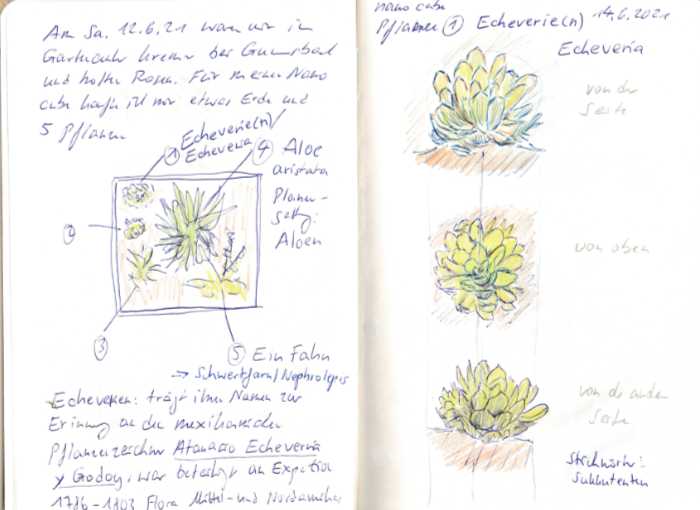 Am Sa. 12.6.21 waren wir im
Gartencenter Kremer bei Gummersbach
und holten Rosen. Für meine Nano
cube kaufte ich mir etwas Erde und
5 Pflanzen
① Echeverie(n)/
Echeveria
④ Aloe
aristata
Plural-
Setzg:
Aloen
②
③
⑤ Ein Farn
→ Schwertfarn/Nephrolepis
Echeverien: trägt ihren Namen zur
Erinnerung an den mexikanischen
Pflanzenzeichner Atanasio Echeverria
y Godoy, war beteiligt an Expedition
1786-1803 Flora Mittel- und Nordamerikas
nano cube
Pflanzen ① Echeverie(n) 14.6.2021
Echeveria
von der
Seite
von oben
von der anderen
Seite
Stichwort:
Sukkulenten